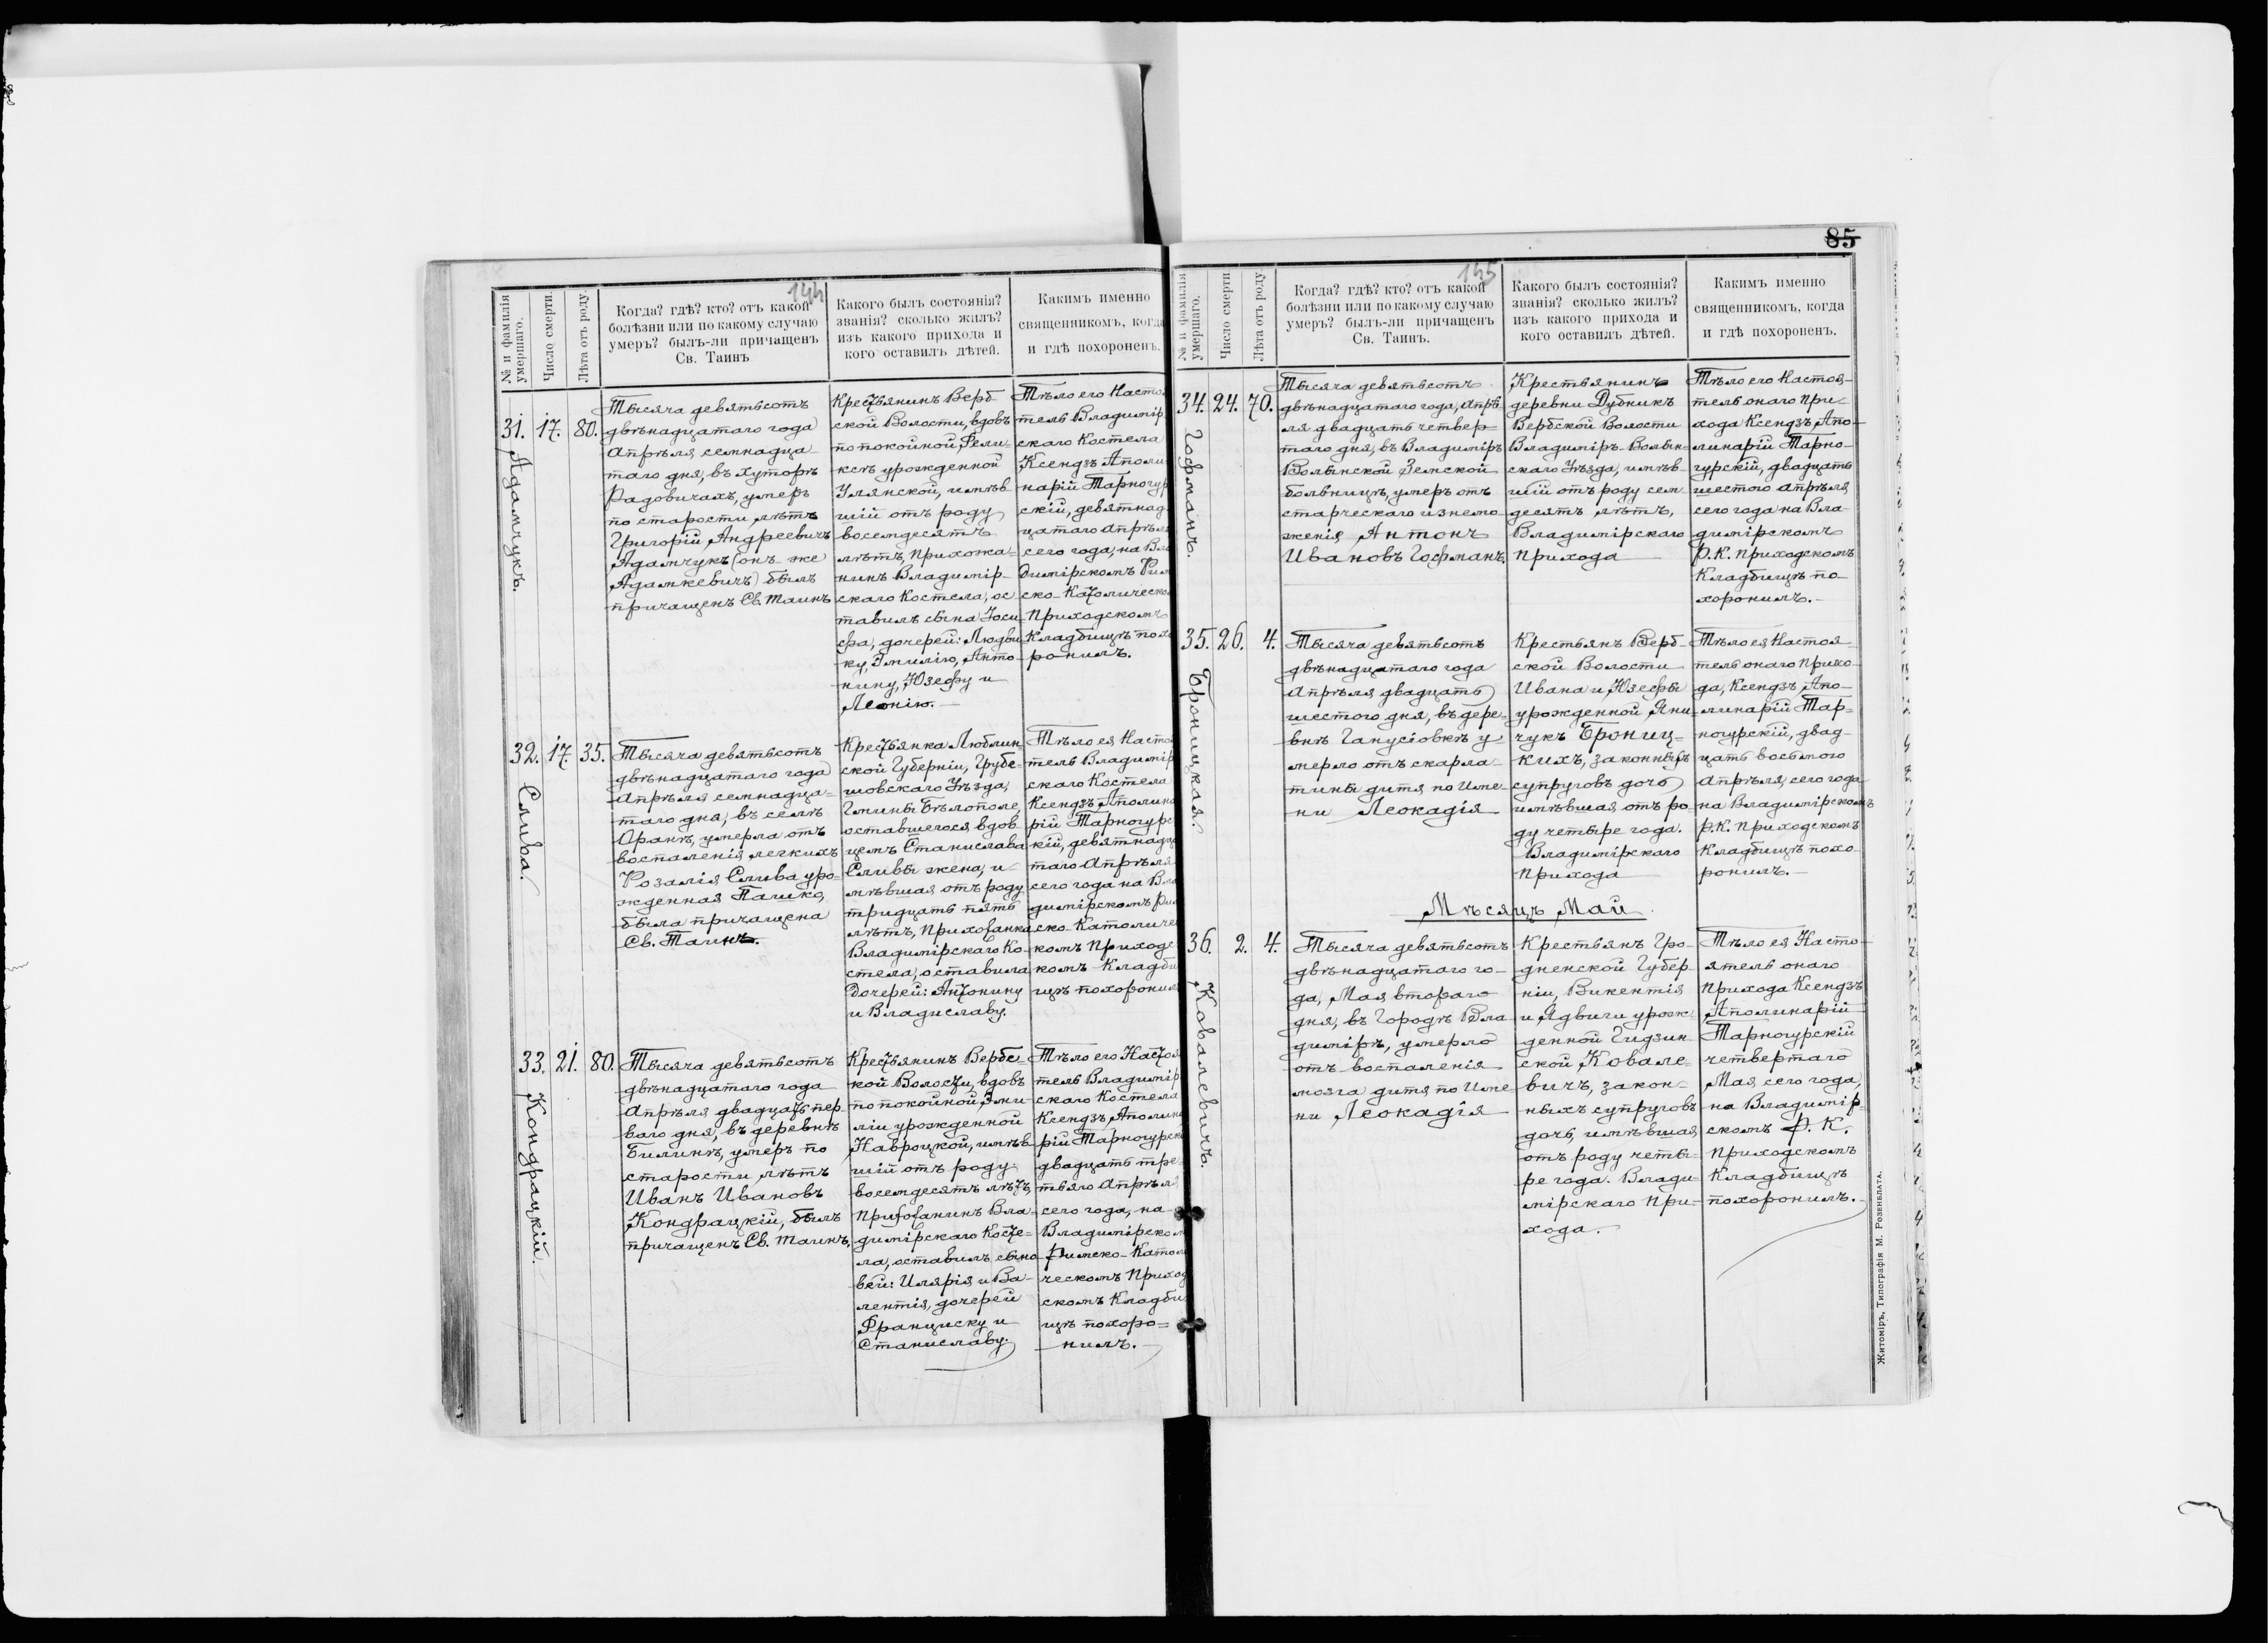 144
№ и фамилія
умершаго.
Число смерти.
Лѣта отъ роду.
Когда? гдѣ? кто? отъ какой
болѣзни или по какому случаю
умеръ? былъ-ли причащенъ
Св. Таинъ
Какого былъ состоянія?
званія? сколько жилъ?
изъ какого прихода и
кого оставилъ дѣтей.
Какимъ именно
священникомъ, когда
и гдѣ похороненъ.
31. 17. 80.
Адамчукъ.
Тысяча девятьсотъ
двѣнадцатаго года
Апрѣля семнадца-
таго дня, въ хуторѣ
Радовичахъ, умеръ
по старости лѣтъ
Григорій Андреевичъ
Адамчукъ (онъ же
Адамкевичъ) былъ
причащенъ Св. Таинъ
Крестьянинъ Верб-
ской Волости, вдовъ
по покойной Фели-
ксѣ урожденной
Улянской, имѣв
шій отъ роду
восемдесятъ
лѣтъ, прихожа-
нинъ Владимір-
скаго Костела, ос
тавилъ сына Іоси
фа, дочерей: Людви
ку, Эмилію, Анто-
нину, Юзефу и
Леонію.
Тѣло его Насто
тель Владимір
скаго Костела
Ксендзъ Аполи
нарій Тарногур
скій, девятнад
цатаго Апрѣля
сего года, на Вла
димірскомъ Рим
ско-Католическо
Приходскомъ
Кладбищѣ похо
ронилъ.
32. 17. 35.
Слива.
Тысяча девятьсотъ
двѣнадцатаго года
Апрѣля семнадца-
таго дня, въ селѣ
Оранѣ, умерла отъ
воспаленія легкихъ
Розалія Слива уро-
жденная Пашко,
была причащена
Св. Таинъ.
Крестьянка Люблин-
ской Губерніи, Грубе-
шовскаго Уѣзда,
Гмины Бѣлополе,
оставшегося вдов
цемъ Станислава
Сливы жена, и-
мѣвшая отъ роду
тридцать пять
лѣтъ, Прихожанка
Владимірскаго Ко-
стела, оставила
дочерей: Антонину
и Владиславу.
Тѣло ея Насто
тель Владимір
скаго Костела
Ксендзъ Аполина
рій Тарногурс
кій, девятнадца
таго Апрѣля
сего года на Вла
димірскомъ Рим
ско-Католичес
комъ Приходс
комъ Кладби
щѣ похоронил
33. 21. 80.
Кондрацкій.
Тысяча девятьсотъ
двѣнадцатаго года
Апрѣля двадцать пер-
ваго дня, въ деревнѣ
Билинѣ, умеръ по
старости лѣтъ
Иванъ Ивановъ
Кондрацкій, былъ
причащенъ Св. Таинъ.
Крестьянинъ Вербс-
кой Волости, вдовъ
по покойной Эми
ліи урожденной
Навроцкой, имѣв-
шій отъ роду
восемдесятъ лѣтъ,
Прихожанинъ Вла-
димірскаго Косте-
ла, оставилъ сыно-
вей: Илярія и Ва-
лентія, дочерей
Франциску и
Станиславу.
Тѣло его Настоя
тель Владимір
скаго Костела
Ксендзъ Аполина
рій Тарногурск
двадцать тре
тьяго Апрѣля
сего года, на
Владимірском
Римско-Католи
ческомъ Приход
скомъ Кладби
щѣ похоро=
нилъ.
85
145
№ и фамилія
умершаго.
Число смерти
Лѣта отъ роду
Когда? гдѣ? кто? отъ какой
болѣзни или по какому случаю
умеръ? былъ-ли причащенъ
Св. Таинъ.
Какого былъ состоянія?
званія? сколько жилъ?
изъ какого прихода и
кого оставилъ дѣтей.
Какимъ именно
священникомъ, когда
и гдѣ похороненъ.
34. 24. 70.
Гофманъ.
Тысяча девятьсотъ
двѣнадцатаго года, Апрѣ-
ля двадцать четвер=
таго дня, въ Владиміръ
Волынской Земской
больницѣ, умеръ отъ
старческаго изнемо-
женія Антонъ
Ивановъ Гофманъ.
Крестьянинъ
деревни Дубникъ
Вербской Волости
Владиміръ-Волын-
скаго Уѣзда, имѣв-
шій отъ роду сем
десятъ лѣтъ,
Владимірскаго
прихода
Тѣло его Настоя-
тель онаго при-
хода Ксендзъ Апо-
линарій Тарно-
гурскій, двадцать
шестого апрѣля
сего года на Вла-
димірскомъ
Р.К. приходскомъ
Кладбищѣ по-
хоронилъ.
35. 26. 4.
Броницкая.
Тысяча девятьсотъ
двѣнадцатаго года
Апрѣля двадцать
шестого дня, въ дере-
внѣ Ганусіовкѣ у-
мерло отъ скарла-
тины дитя по Име-
ни Леокадія
Крестьянъ Верб-
ской Волости
Ивана и Юзефы
урожденной Яни=
чукъ Брониц=
кихъ, законныхъ
супруговъ дочь
имѣвшая отъ ро-
ду четыре года.
Владимірскаго
прихода
Тѣло ея Настоя-
тель онаго Прихо-
да, Ксендзъ Апо-
линарій Тар=
ногурскій, двад-
цать восьмого
Апрѣля, сего года
на Владимірскомъ
Р.К. приходскомъ
Кладбищѣ похо-
ронилъ.
Мѣсяцъ Май.
36. 2. 4.
Ковалевичъ.
Тысяча девятьсотъ
двѣнадцатаго го-
да, Мая второго
дня, въ Городѣ Вла
димірѣ, умерло
отъ воспаленія
мозга дитя по Име
ни Леокадія
Крестьянъ Гро-
дненской Губер-
ніи, Викентія
и Ядвиги урож-
денной Гидзин-
ской Ковале-
вичъ, закон-
ныхъ супруговъ
дочь, имѣвшая
отъ роду четы-
ре года. Влади-
мірскаго При-
хода.
Тѣло ея Насто-
ятель онаго
Прихода Ксендзъ
Аполинарій
Тарногурскій
четвертаго
Мая сего года,
на Владимір-
скомъ Р. К.
приходскомъ
Кладбищѣ
похоронилъ.
Житоміръ, Типографія М. Розенблата.